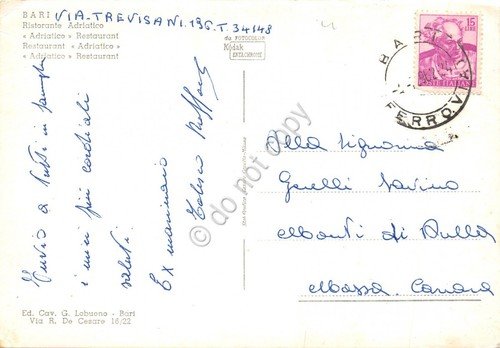 BARI VIA-TREVISANI.196.T.34148
Ristorante Adriatico
« Adriatico » Restaurant
Restaurant « Adriatico »
« Adriatico » Restaurant
da FOTOCOLOR
Kodak
EKTACHROME
15
LIRE
POSTE ITALIANE
BARI
FERROVIA
Invio a tutti in famiglia
i miei più cordiali
saluti.
Ex marinaio
Alla Signorina
Guelli Savina
Monti di
Massa. Carrara
do not copy
Ed. Cav. G. Lobuono - Bari
Via R. De Cesare 16/22